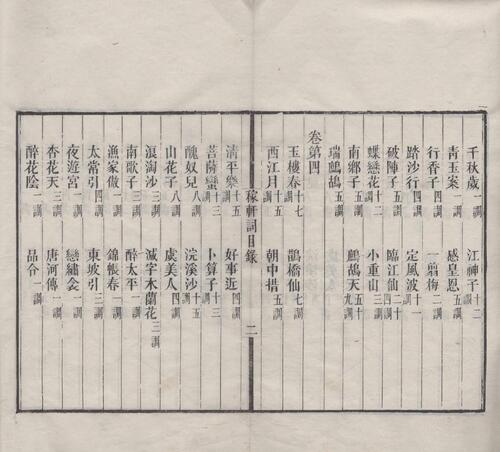 千秋歲一調　江神子十二調
青玉案一調　感皇恩五調
行香子調　一翦梅二調
踏沙行四調　定風波十一調
破陣子五調　臨江仙調
蝶戀花十二調　小重山三調
南鄉子五調　鷓鴣天五十九調
瑞鷓鴣五調
卷第四
玉樓春十七調　鵲橋仙七調
西江月調　朝中措五調
稼軒詞目錄　二
清平樂十五調　好事近四調
菩薩蠻十三調　卜算子十三調
醜奴兒八調　浣溪沙十五調
山花子八調　虞美人四調
浪淘沙三調　減字木蘭花三調
南歌子三調　醉太平一調
太常引四調　東坡引三調
漁家傲一調　錦帳春一調
夜遊宮一調　戀繡衾一調
杏花天三調　唐河傳一調
醉花陰一調　品令一調